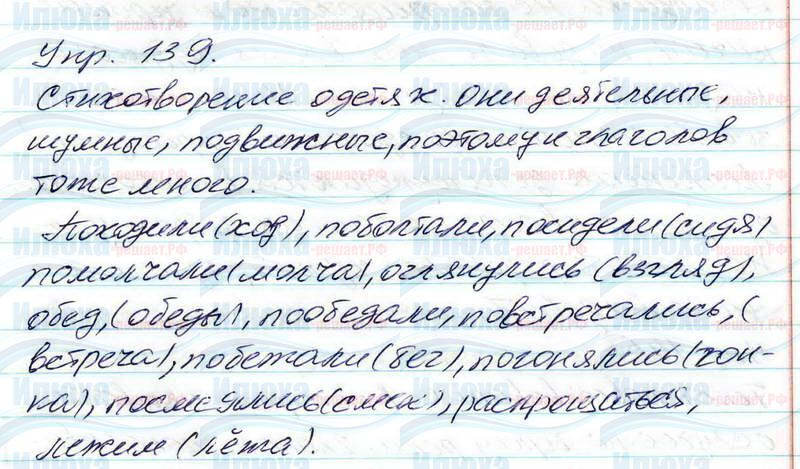 Упр. 139.
Стихотворение о детях. Они деятельные,
шумные, подвижные, поэтому и глаголов
тоже много.
Походили (ход), поболтали, посидели (сидя)
помолчали (молча), оглянулись (взгляд),
обед, (обеды), пообедали, повстречались, (
встреча), побежали (бег), погонялись (гон-
ка), посмеялись (смех), распрощаться,
лежим (лёжа).